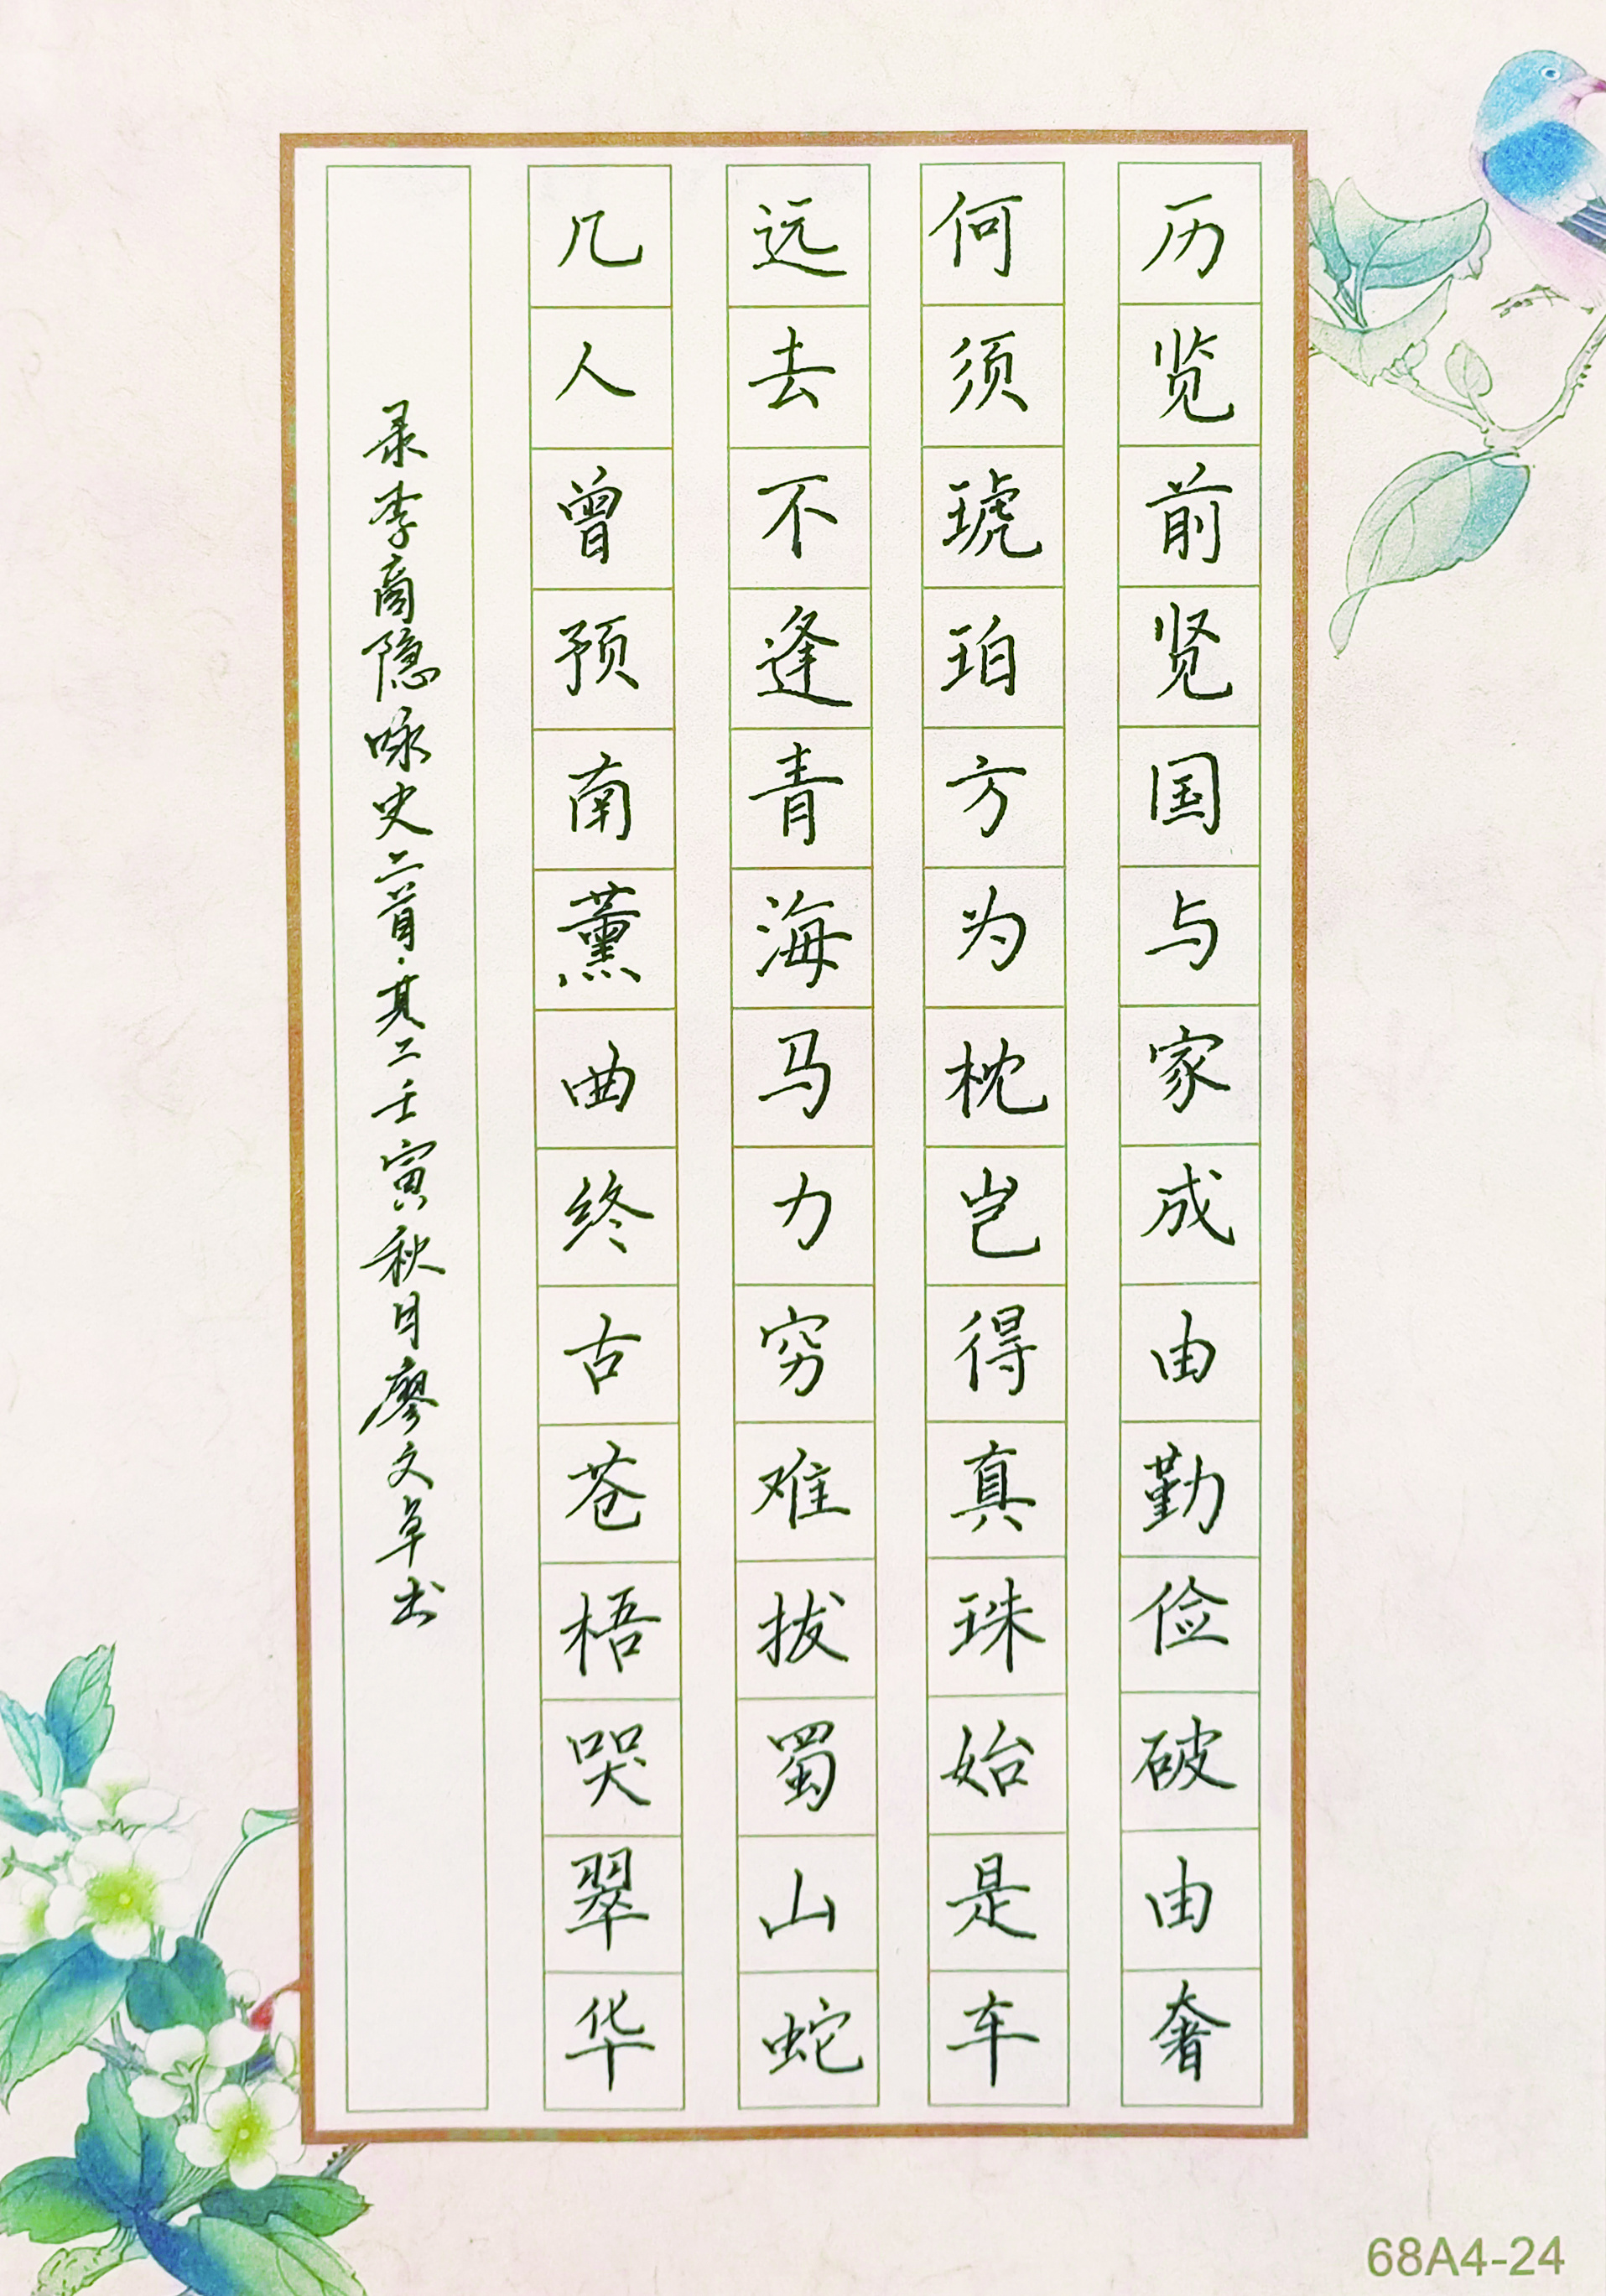 历览前贤国与家成由勤俭破由奢
何须琥珀方为枕岂得真珠始是车
远去不逢青海马力穷难拔蜀山蛇
几人曾预南薰曲终古苍梧哭翠华
录李商隐咏史二首·其二壬寅秋月廖文卓书
68A4-24